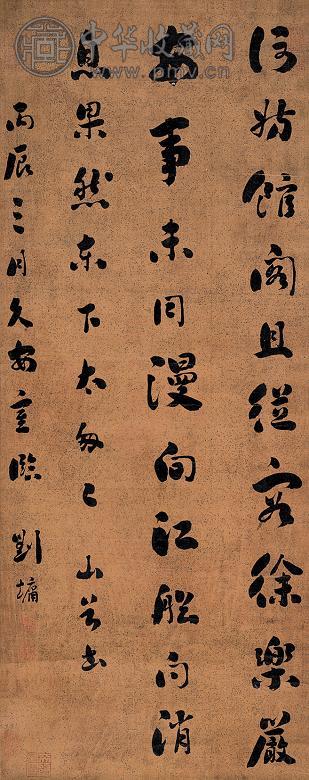 中华收藏网
www.pmv.cn
何妨館閣且從容徐樂嚴
安事未同漫向江船問消
息果然東下太匆匆 山谷書
丙辰三月久安室臨 劉墉